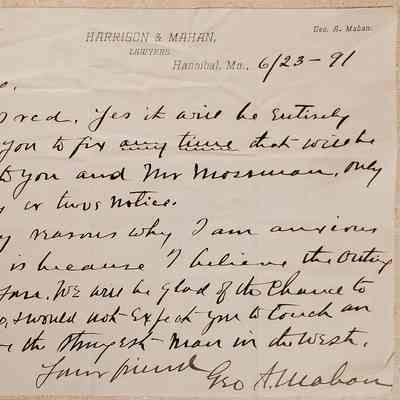 HARRISON & MAHAN,
Geo. A. Mahan.
LAWYERS
Hannibal, Mo., 6/23-91
recd. Yes it will be entirely
you to fix any time that will be
to you and Mr Mossman, only
or two's notice.
reasons why I am anxious
is because I believe the Outing
We will be glad of the chance to
I would not expect you to touch an
the strongest man in the West.
Your friend
Geo A. Mahan